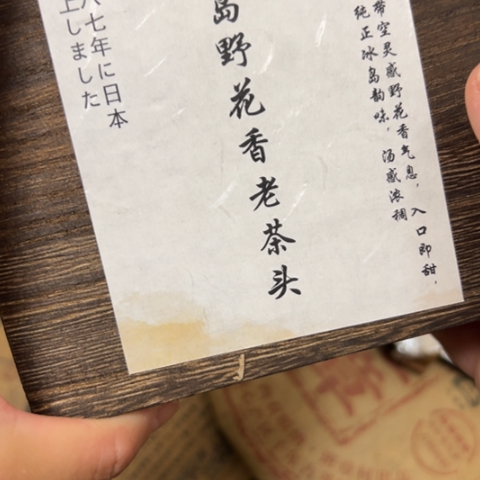 带空灵感野花香气息，入口即甜，
纯正冰岛韵味，汤感浓稠
岛野花香老茶头
八七年に日本
上しました